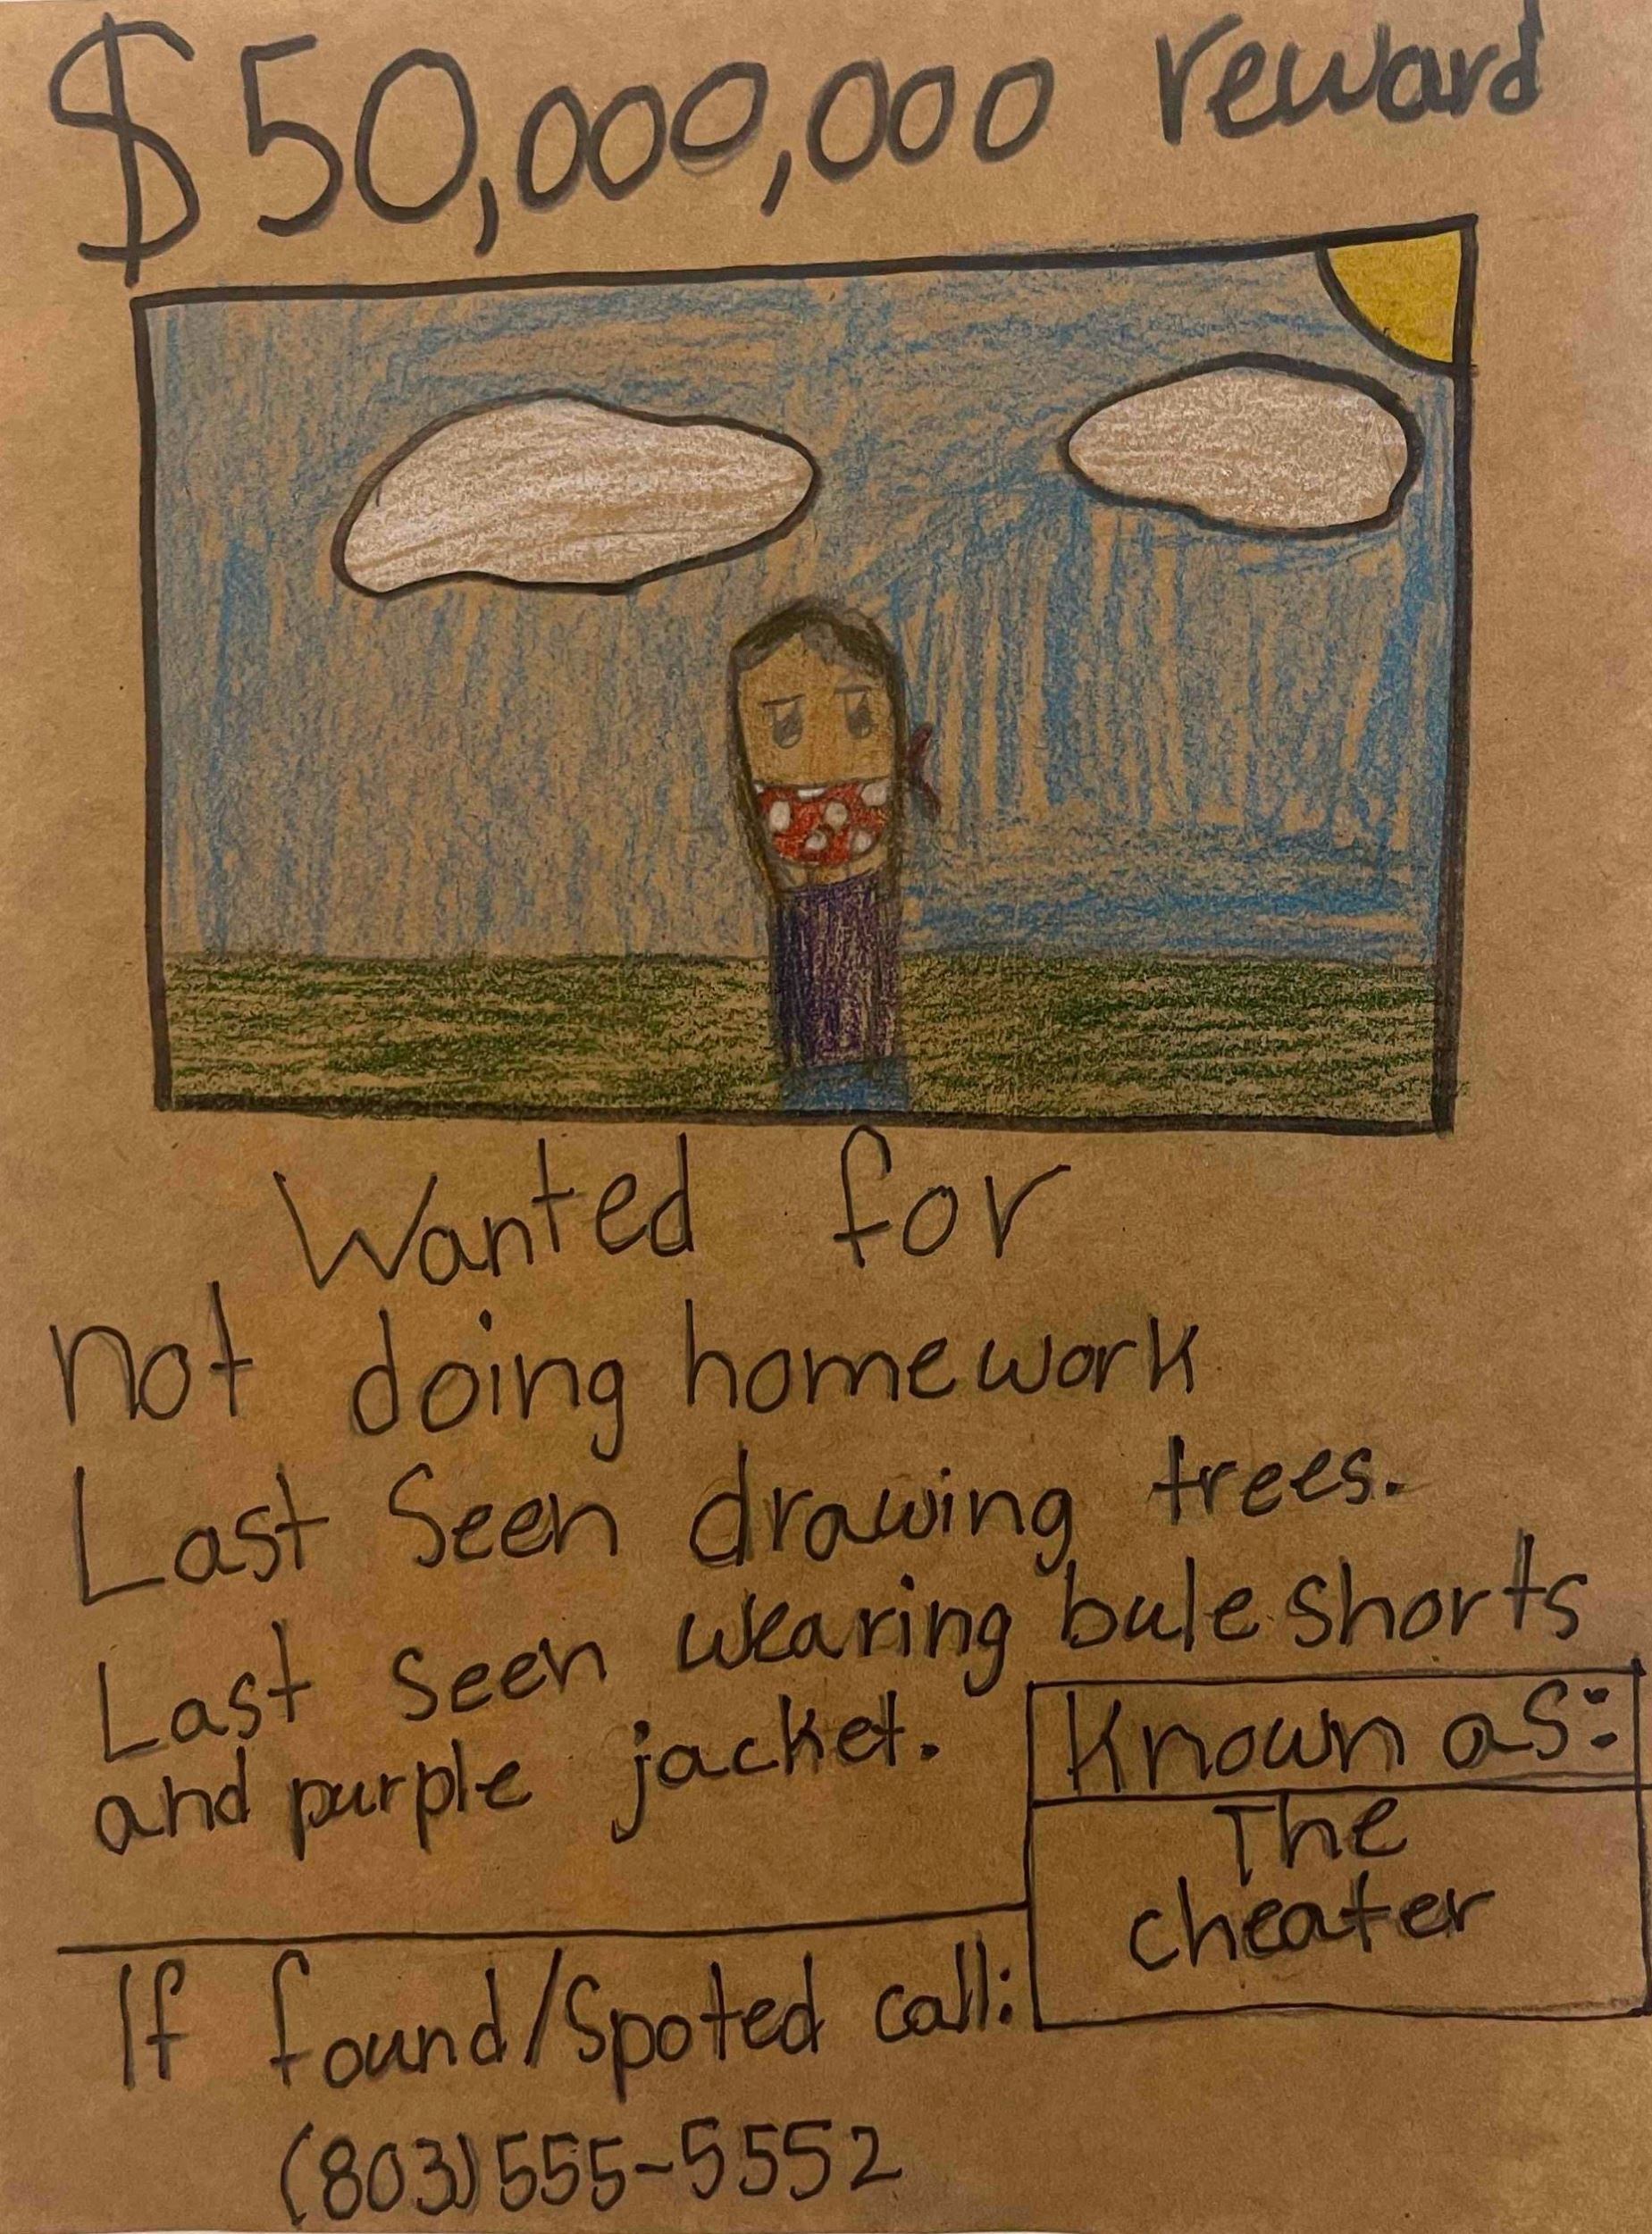 $50,000,000 reward
Wanted for
not doing homework
Last Seen drawing trees.
Last seen wearing bule shorts
and purple jacket.
Known as:
The
cheater
If found/Spoted call:
(803)555-5552